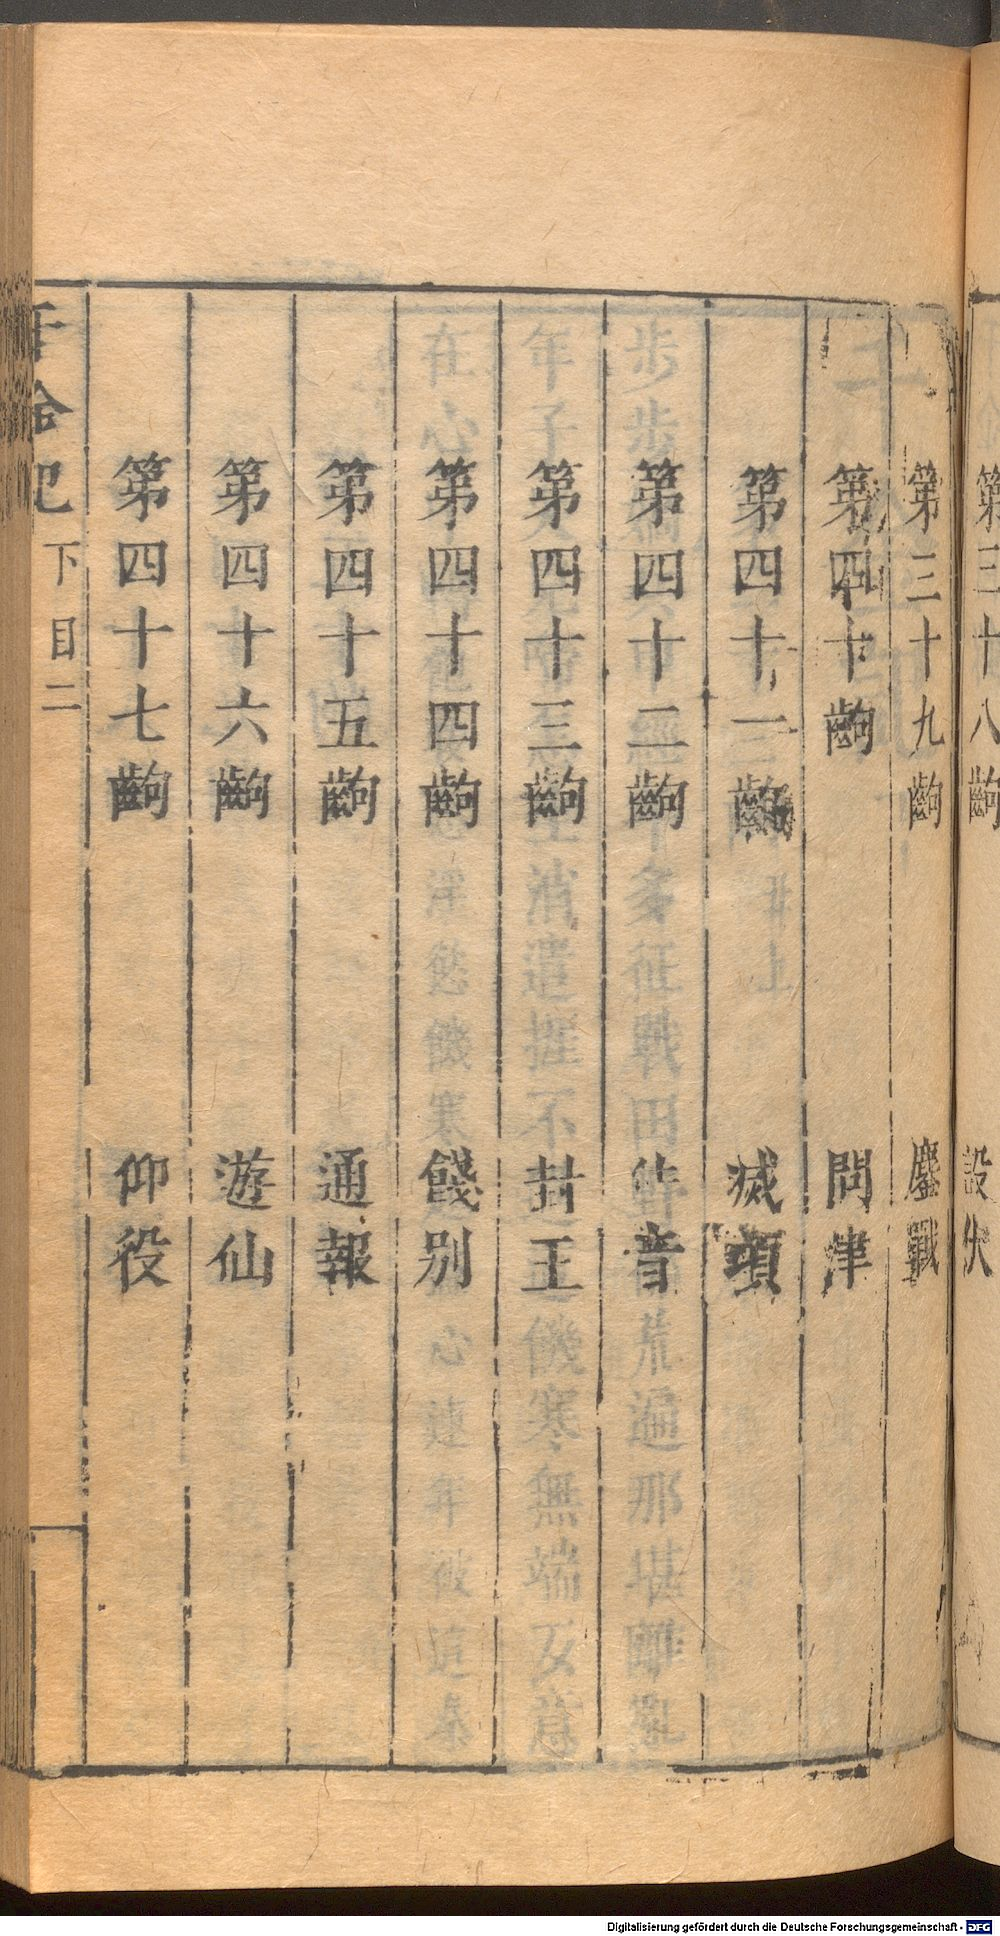 第三十八齣　設伏
第三十九齣　鏖戰
第四十齣　問津
第四十一齣　滅項
第四十二齣　音
第四十三齣　封王
第四十四齣　餞別
第四十五齣　通報
第四十六齣　遊仙
第四十七齣　仰役
千金記　下目二
Digitalisierung gefördert durch die Deutsche Forschungsgemeinschaft - DFG